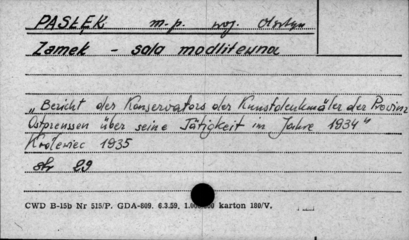 PASŁĘK m.p. woj. Olsztyn
Zamek - sala modlitewna
"Bericht des Konservators der Kunstdenkmäler der Provinz
Ostpreussen über seine Tätigkeit im Jahre 1934"
Królewiec 1935
str 29
CWD B-15b Nr 515/P. GDA-809. 6.3.59. karton 180/V.